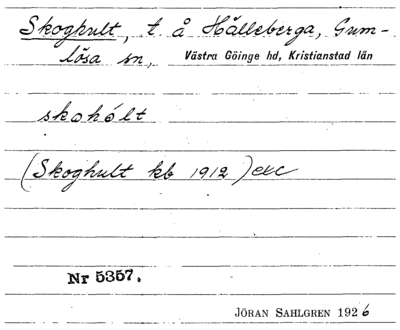 Skoghult, t. å Hålleberga, Gum-
lösa sn, Västra Göinge hd, Kristianstad län
skohólt
(Skoghult kb 1912) exc
Nr 5357.
JÖRAN SAHLGREN 1926